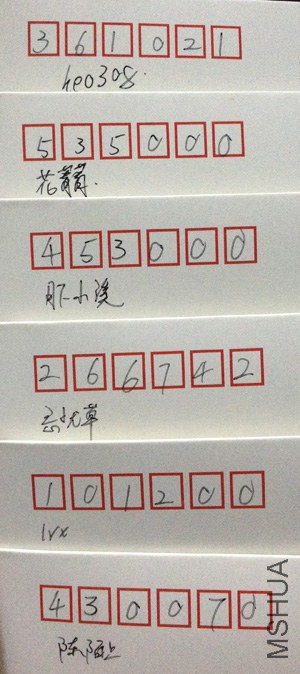 361021
heo308.
535000
453000
月下小溪
266742
忘忧草
101200
lvx
430070
MSHUA